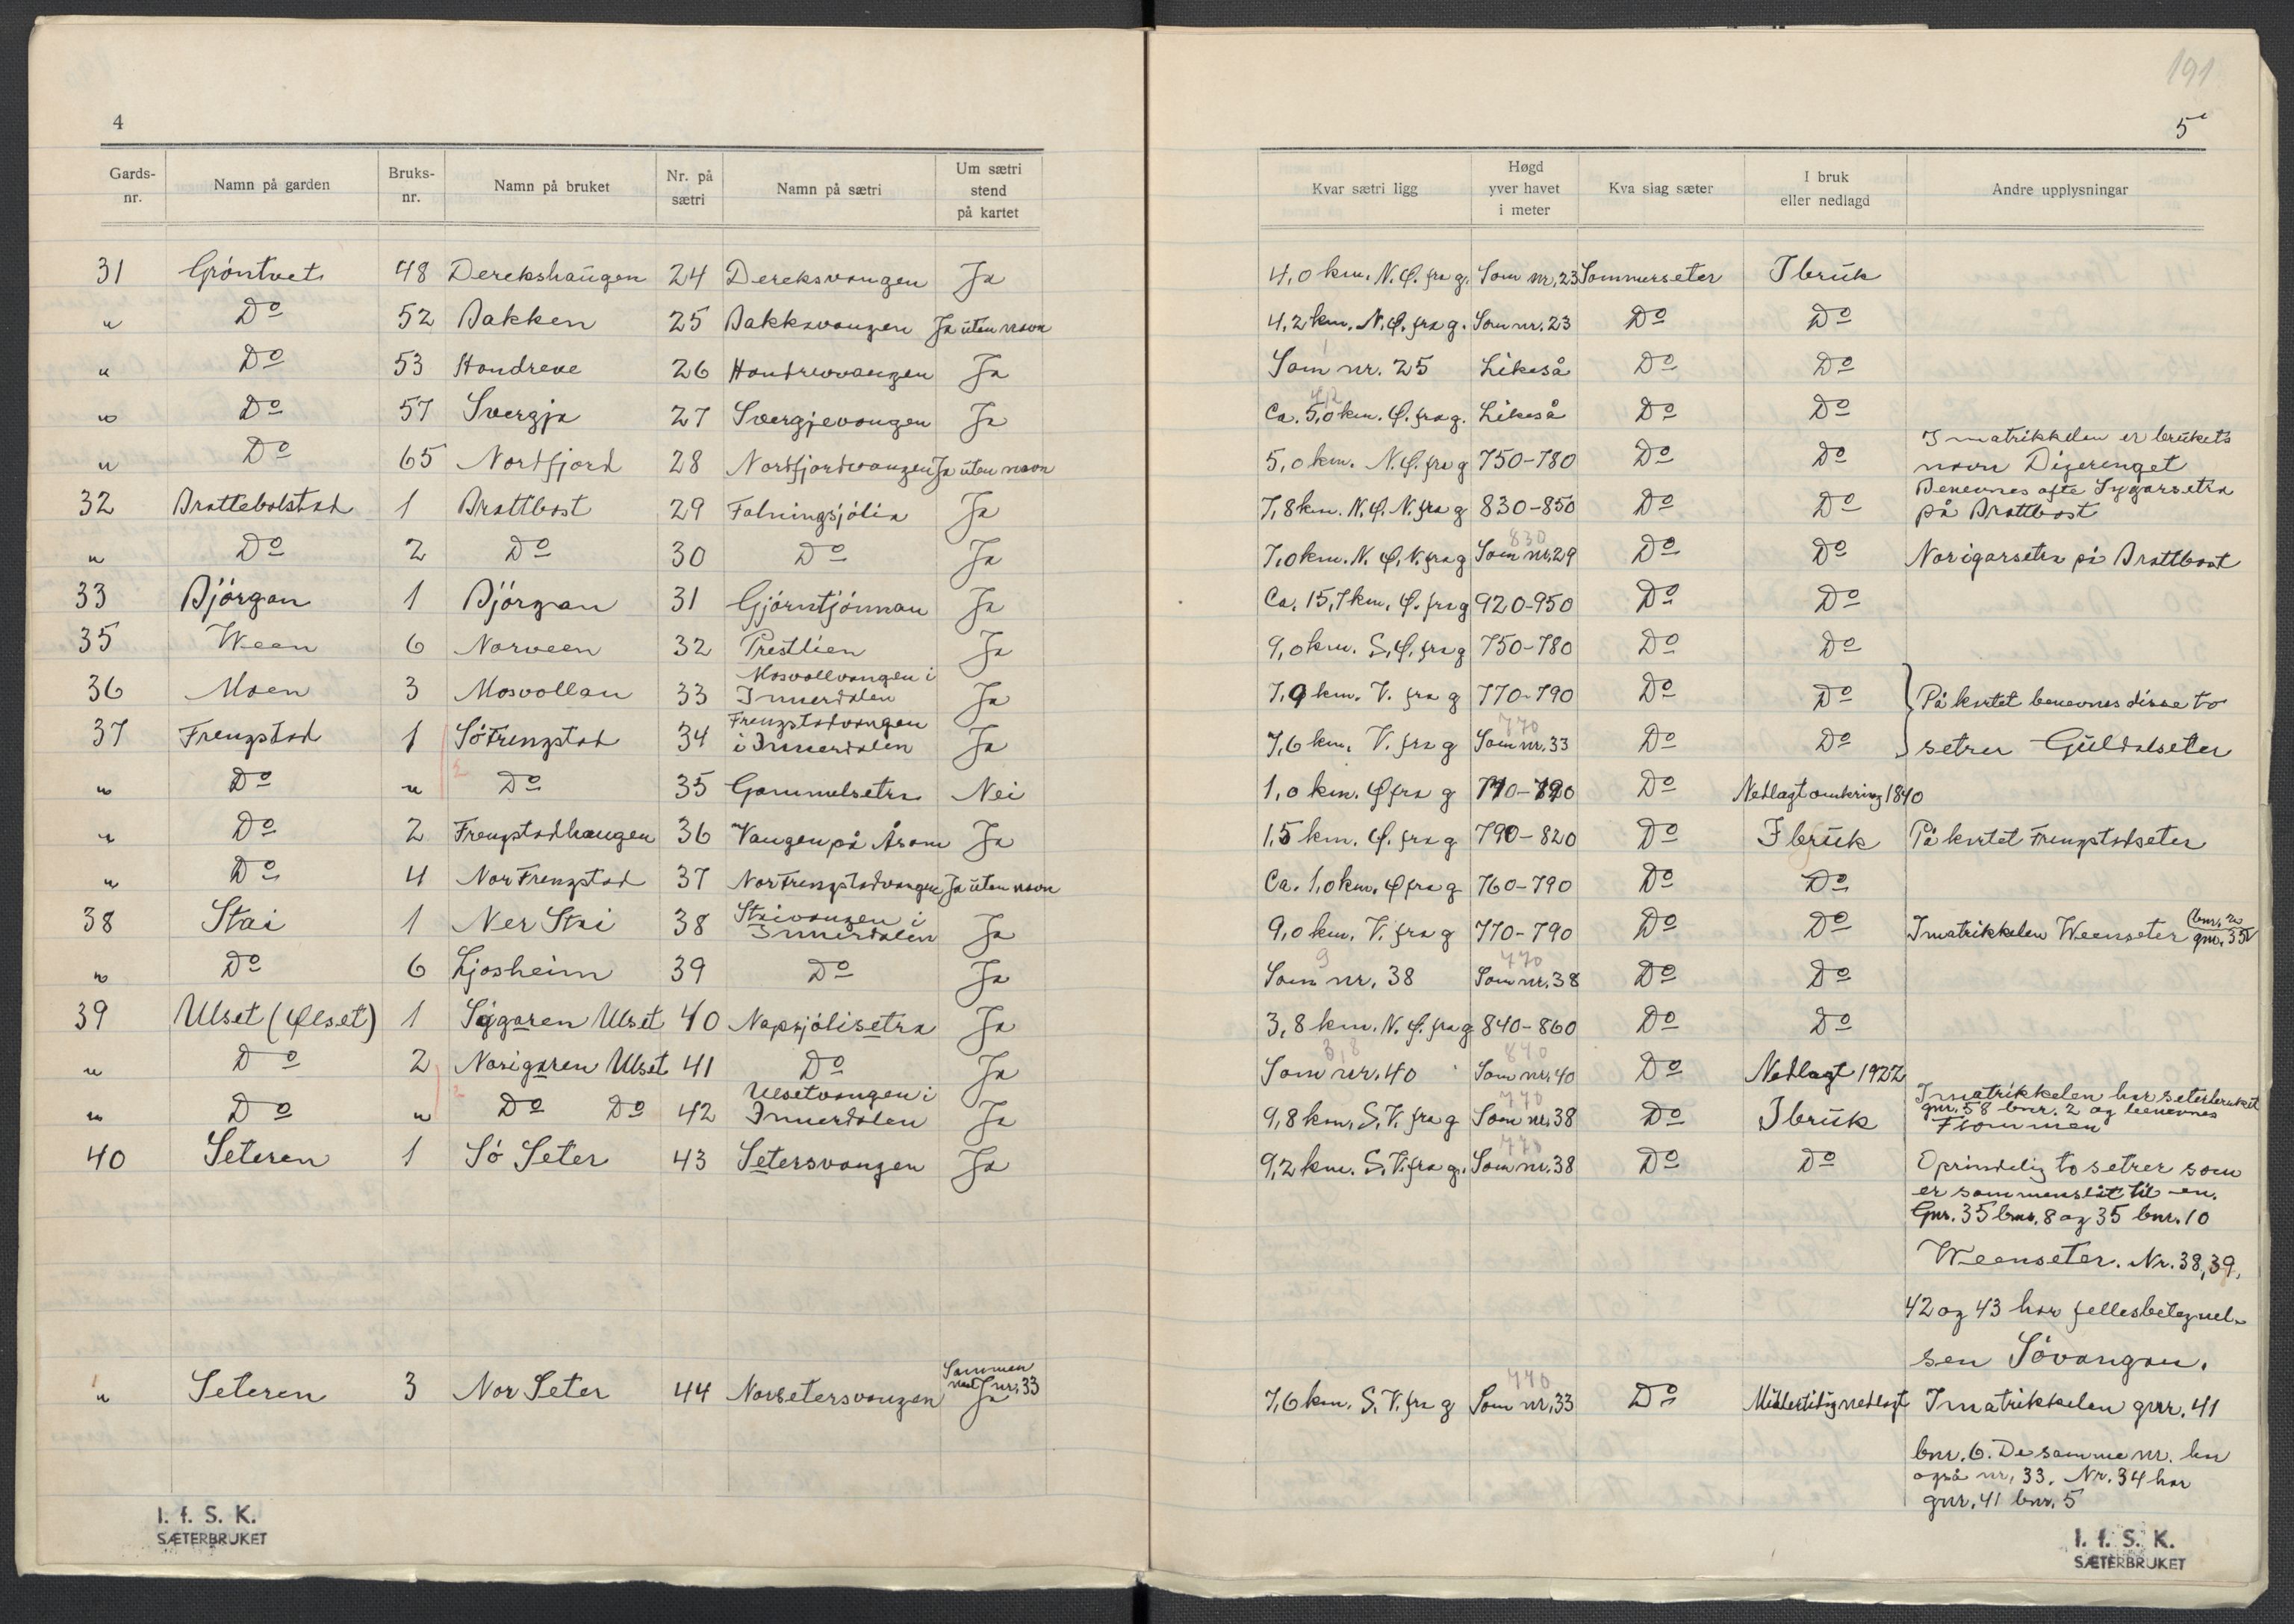 4
Gards-nr. Namn på garden Bruks-nr. Namn på bruket Nr. på sætri Namn på sætri Um sætri stend på kartet
31 Gröntvet 48 Derekshaugen 24 Dereksvangen Ja
" Do 52 Bakken 25 Bakkavangen Ja uten navn
" Do 53 Hondreve 26 Hondrevvangen Ja
" Do 57 Svergja 27 Svergjevangen Ja
" Do 65 Nordfjord 28 Nordfjordvangen Ja uten navn
32 Brattebolstad 1 Brattbost 29 Falningsjölia Ja
" Do 2 Do 30 Do Ja
33 Björgan 1 Björgan 31 Gjörntjönnan Ja
35 Ween 6 Norveen 32 Prestlien Ja
36 Moen 3 Mosvollan 33 Mosvollvangen i Innerdalen Ja
37 Frengstad 1 SöFrengstad 34 Frengstadvangen i Innerdalen Ja
" Do " 2 Do 35 Gammelsetra Nei
" Do 2 Frengstadhaugen 36 Vangen på Åsom Ja
" Do 4 NorFrengstad 37 NorFrengstadvangen Ja uten navn
38 Stai 1 Ner Stai 38 Staivangen i Innerdalen Ja
" Do 6 Ljosheim 39 Do Ja
39 Ulset (Ølset) 1 Söggaren Ulset 40 Napsjölisetra Ja
" Do 2 Norigaren Ulset 41 Do Ja
" Do " 2 Do Do 42 Ulsetvangen i Innerdalen Ja
40 Seteren 1 Sö Seter 43 Setersvangen Ja
" Seteren 3 Nor Seter 44 Norsetersvangen Sammen med nr. 33 Ja
I. f. S. K.
SÆTERBRUKET
191
5
Kvar sætri ligg Høgd yver havet i meter Kva slag sæter I bruk eller nedlagd Andre upplysningar
4,0 km. N.Ø. fra g. Som nr. 23 Sommerseter I bruk
4,2 km. N.Ø. fra g. Som nr. 23 Do Do
Som nr. 25 Likeså Do Do
Ca. 5,0 km. Ø. fra g. Likeså Do Do
5,0 km. N.Ø. fra g 750-780 Do Do I matrikkelen er brukets navn Digerenget
7,8 km. N.Ø.N. fra g 830-850 Do Do Benevnes ofte Sygarsetra på Brattbost
7,0 km. N.Ø.N. fra g Som nr. 29 830 Do Do Norigarsetra på Brattbost
Ca. 15,7 km. Ø. fra g 920-950 Do Do
9,0 km. S.Ø. fra g 750-780 Do Do
7,9 km. V. fra g 770-790 Do Do } På kartet benevnes disse to
7,6 km. V. fra g Som nr. 33 770 Do Do setrer Guldalseter
1,0 km. Ø fra g 770-790 Do Nedlagt omkring 1840
1,5 km. Ø. fra g 790-820 Do I bruk På kartet Frengstadseter
Ca. 1,0 km. Ø fra g 760-790 Do Do
9,0 km. V. fra g 770-790 Do Do I matrikkelen Weenseter gnr. 35
Som nr. 38 9 Som nr. 38 770 Do Do
3,8 km. N.Ø. fra g 840-860 Do Do
Som nr. 40 3,8 Som nr. 40 840 Do Nedlagt 1922
9,8 km. S.V. fra g Som nr. 38 770 Do I bruk I matrikkelen har seterbruket gnr. 58 bnr. 2 og benevnes Flommen
9,2 km. S.V. fra g. Som nr. 38 770 Do Do Oprindelig to setrer som
er sammenslåt til en.
Gnr. 35 bnr. 8 og 35 bnr. 10
Weenseter. Nr. 38, 39,
42 og 43 har fellesbetegnel-
sen Sövangan.
7,6 km. S.V. fra g Som nr. 33 770 Do Midlertidig nedlagt I matrikkelen gnr. 41
bnr. 6. De samme nr. har
også nr. 33. Nr. 34 har
gnr. 41 bnr. 5
I. f. S. K.
SÆTERBRUKET